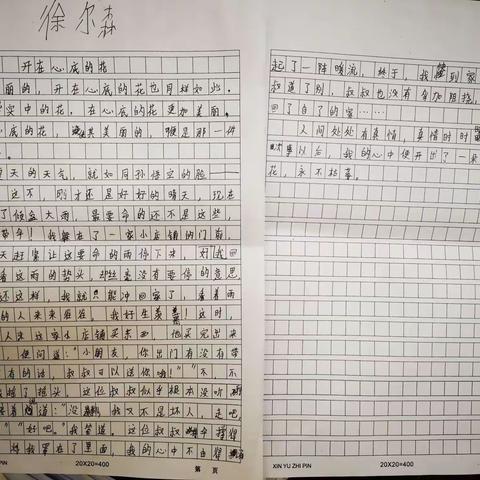 徐尔森
开在心底的花
丽的，开在心底的花也同样如此。
实中的花，在心底的花更加美丽。
心底的花，其美丽的，那一件
。
天的天气，就如同孙悟空的脸——
这不，刚才还是好好的晴天，现在
了倾盆大雨，最要命的还不是这些，
带伞！我躲在了一家小店铺的门前，
天赶紧让这要命的雨停下来，好我回
看这雨的势头，却丝毫没有要停的意思
还这样，我就只能冲回家了，看着雨
的人来来往往，我好生羡慕！这时，
人来这家小店铺买东西，他买完出来
便问道：“小朋友，你出门有没有带
有的话，叔叔可以送你哦！”“不，不
摇了摇头。这位叔叔似乎根本没听
道：“没，我又不是坏人，走吧，
”“好吧。”我答道。这位叔叔伞撑得
将我罩在了里面，我的心中不由得
PIN
20X20=400
第 页
起了一阵暖流，终于，我到家
叔道了别，叔叔也没有多加阻拦，
回了自了的家……
人间处处有真情，真情时时
事以后，我的心中便开出了一朵
花，永不枯萎。
XIN YU ZHI PIN
20X20=400